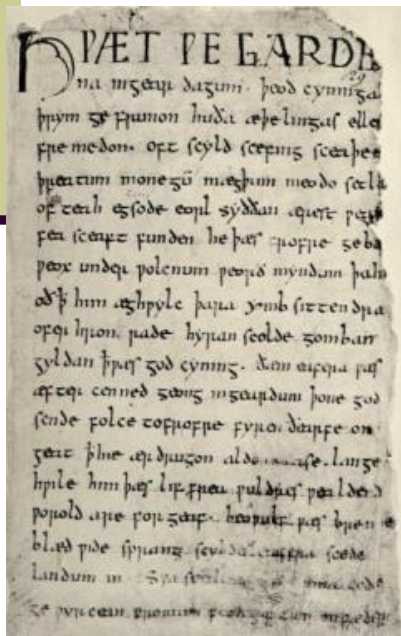 HǷÆT ǷE GARDE
na ingear dagum. þeod cyninga
þrym ge frunon huða æþelingas elle
fre medon. oft scyld scefing sceaþe
þreatum monegū mægþum meodo setla
of teah egsode eorl syððan ærest ƿear
fea sceaft funden he þæs frofre geba
ƿeox under ƿolcnum ƿeorð myndum þah
oð þ him æghƿylc þara ymb sittendra
ofer hron rade hyran scolde gomban
gyldan þæt ƿæs god cyning. ðæm eafera ƿæs
æfter cenned geong in geardum þone god
sende folce tofrofre fyren ðearfe on
geat þhie ær drugon aldor ase. lange
hƿile him þæs lif frea ƿuldres ƿealdend
ƿorold are for geaf. beoƿulf ƿæs breme
blæd ƿide sprang scyldes eafera scede
landum in